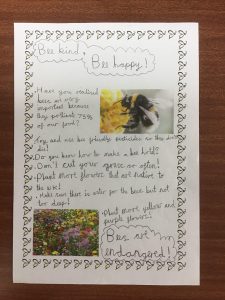 Bee kind,
Bee happy!
Have you realised
bees are very
important because
they pollinate 75%
of our food?
Try and use bee friendly pesticides so they don't
die!
Do you know how to make a bee hotel?
Don't cut your grass so often!
Plant more flowers that are native to
the UK!
Make sure there is water for the bees but not
too deep!
Plant more yellow and
purple flowers!
Bees are
endangered!